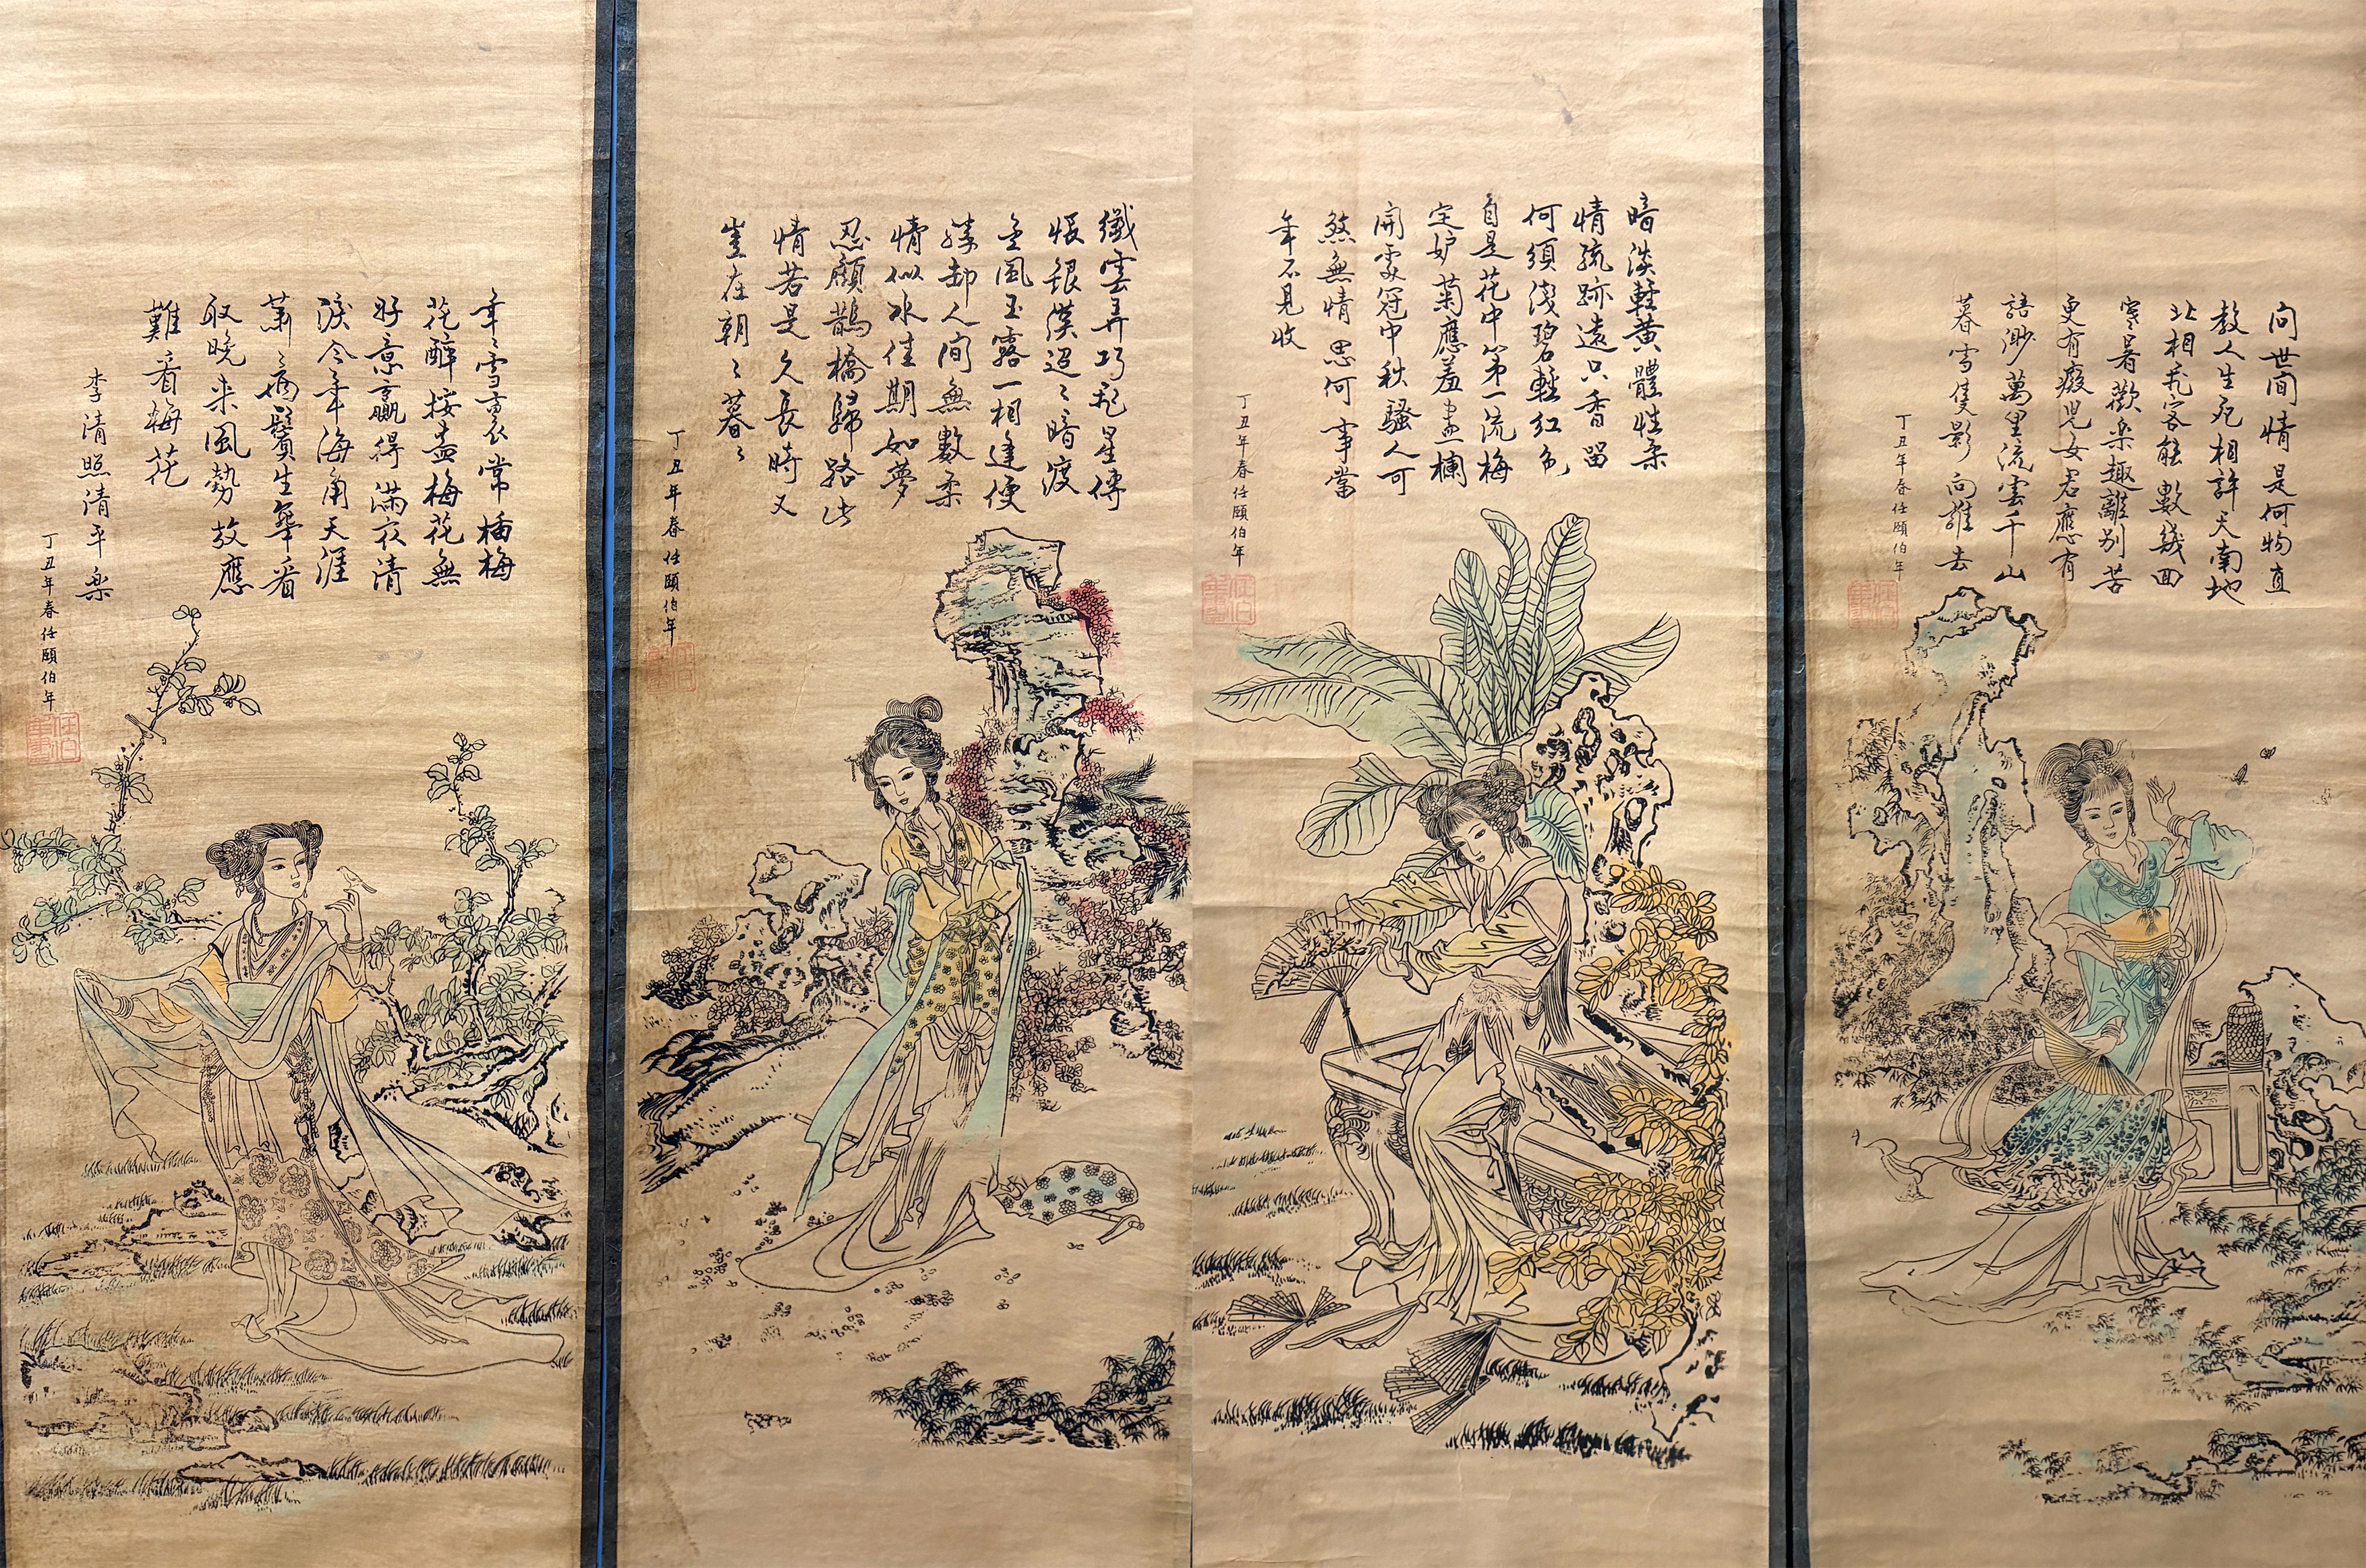 年〻雪裏常插梅
花醉挼盡梅花無
好意贏得滿衣清
淚今年海角天涯
蕭〻兩鬢生華看
取晚来風勢故應
難看梅花
李清照清平楽
丁丑年春任頤伯年
纖雲弄巧飛星傳
恨銀漢迢〻暗渡
金風玉露一相逢便
勝卻人间無數柔
情似水佳期如夢
忍顧鵲橋歸路
情若是久長時又
豈在朝〻暮〻
丁丑年春任頤伯年
暗淡輕黃體性柔
情疏跡遠只香留
何須淺碧輕紅色
自是花中第一流梅
定妒菊應羞畫欄
開處冠中秋騷人可
煞無情思何事當
年不見收
丁丑年春任頤伯年
问世间情是何物直
教人生死相許天南地
北相飛客能數幾回
寒暑歡楽趣離別苦
更有癡児女君應有
語渺萬里流雲千山
暮雪隻影向誰去
丁丑年春任頤伯年